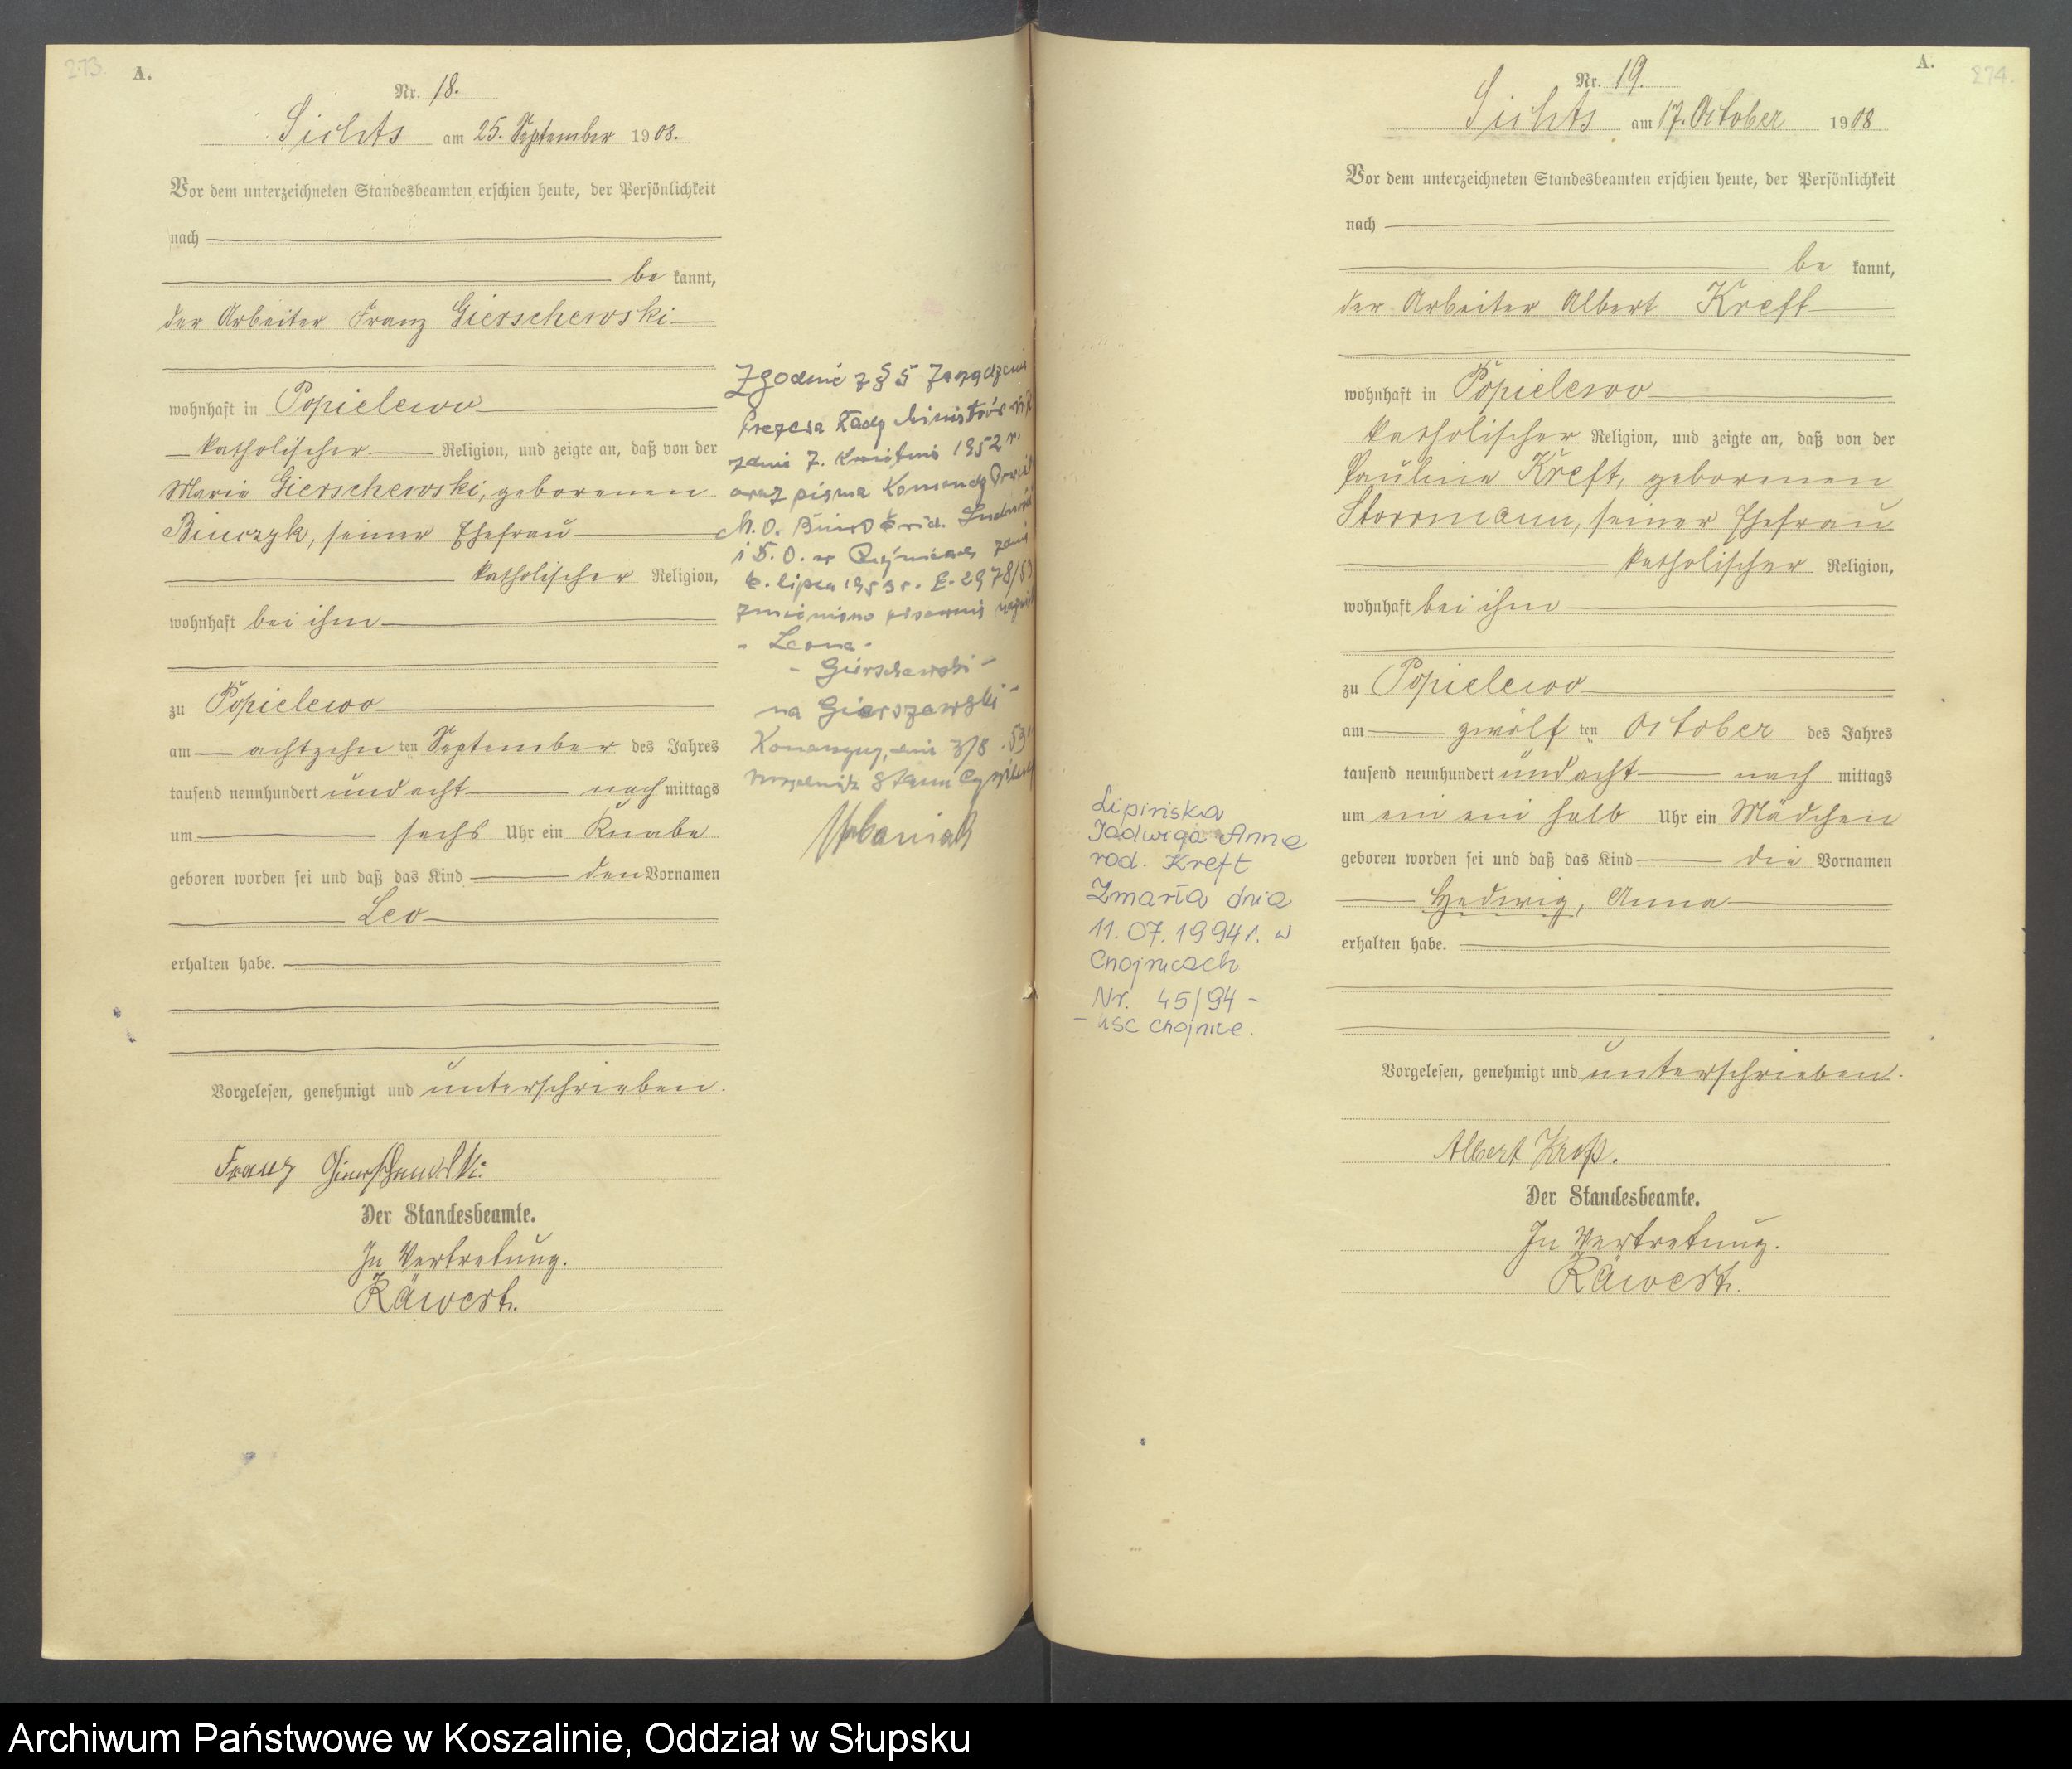 273
A.
Nr. 18.
Sichts am 25. September 1908.
Vor dem unterzeichneten Standesbeamten erschien heute, der Persönlichkeit
nach
be kannt,
der Arbeiter Franz Gierschewski
wohnhaft in Popielewo
katholischer Religion, und zeigte an, daß von der
Marie Gierschewski, geborenen
Binczyk, seiner Ehefrau
katholischer Religion,
wohnhaft bei ihm
zu Popielewo
am achtzehn ten September des Jahres
tausend neunhundert und acht nach mittags
um sechs Uhr ein Knabe
geboren worden sei und daß das Kind den Vornamen
Leo
erhalten habe.
Vorgelesen, genehmigt und unterschrieben.
Franz Gierschewski.
Der Standesbeamte.
In Vertretung.
Räwert.
Zgodnie z § 5 Zarządzenia
Prezesa Rady Ministrów
z dnia 7. kwietnia 1952 r.
oraz pisma Komendy
M.O. Biuro
i D.O. w
6. lipca 1953 r. 2978/53
zmieniono pisownię
- Leona -
- Gierschewski -
na Gierszewski -
Konarzyny, dnia 3/8. 53
Urzędnik Stanu Cywilnego
Urbaniak
A.
274.
Nr. 19.
Sichts am 17. October 1908
Vor dem unterzeichneten Standesbeamten erschien heute, der Persönlichkeit
nach
be kannt,
der Arbeiter Albert Kreft
wohnhaft in Popielewo
katholischer Religion, und zeigte an, daß von der
Pauline Kreft, geborenen
Storrmann, seiner Ehefrau
katholischer Religion,
wohnhaft bei ihm
zu Popielewo
am zwölf ten October des Jahres
tausend neunhundert und acht nach mittags
um ein ein halb Uhr ein Mädchen
geboren worden sei und daß das Kind die Vornamen
Hedwig, Anna
erhalten habe.
Vorgelesen, genehmigt und unterschrieben.
Albert Kreft.
Der Standesbeamte.
In Vertretung.
Räwert.
Lipińska
Jadwiga Anna
rod. Kreft
Zmarła dnia
11.07.1994 r. w
Chojnicach
Nr. 45/94 -
- USC Chojnice.
Archiwum Państwowe w Koszalinie, Oddział w Słupsku